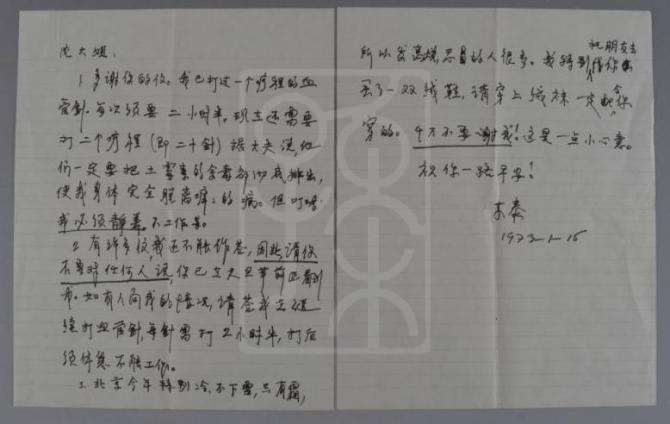 沈大姐：
1. 多谢你的信。我已打过一个疗程的血
管针。每次须要二小时半。现在还需要
打二个疗程（即二十针）据大夫说，他
们一定要把土霉素的余毒都彻底排出，
使我身体完全脱离
的病。但叮嘱
我必须静养。不工作等。
2. 有许多信，我还不能作答，因此请你
不要对任何人说，你已
看到
我。如有人问我的情况，请答我正在继
续打血管针，每针需打二小时半，打后
须休息不能工作。
3. 北京今年特别冷，不下雪，只有霜，
所以发高烧感冒的人很多。我特别托朋友去
买了一双绒鞋，请穿上绒袜一定能合你
穿的。千万不要谢我！这是一点小心意。
祝你一路平安！
1973-1-15